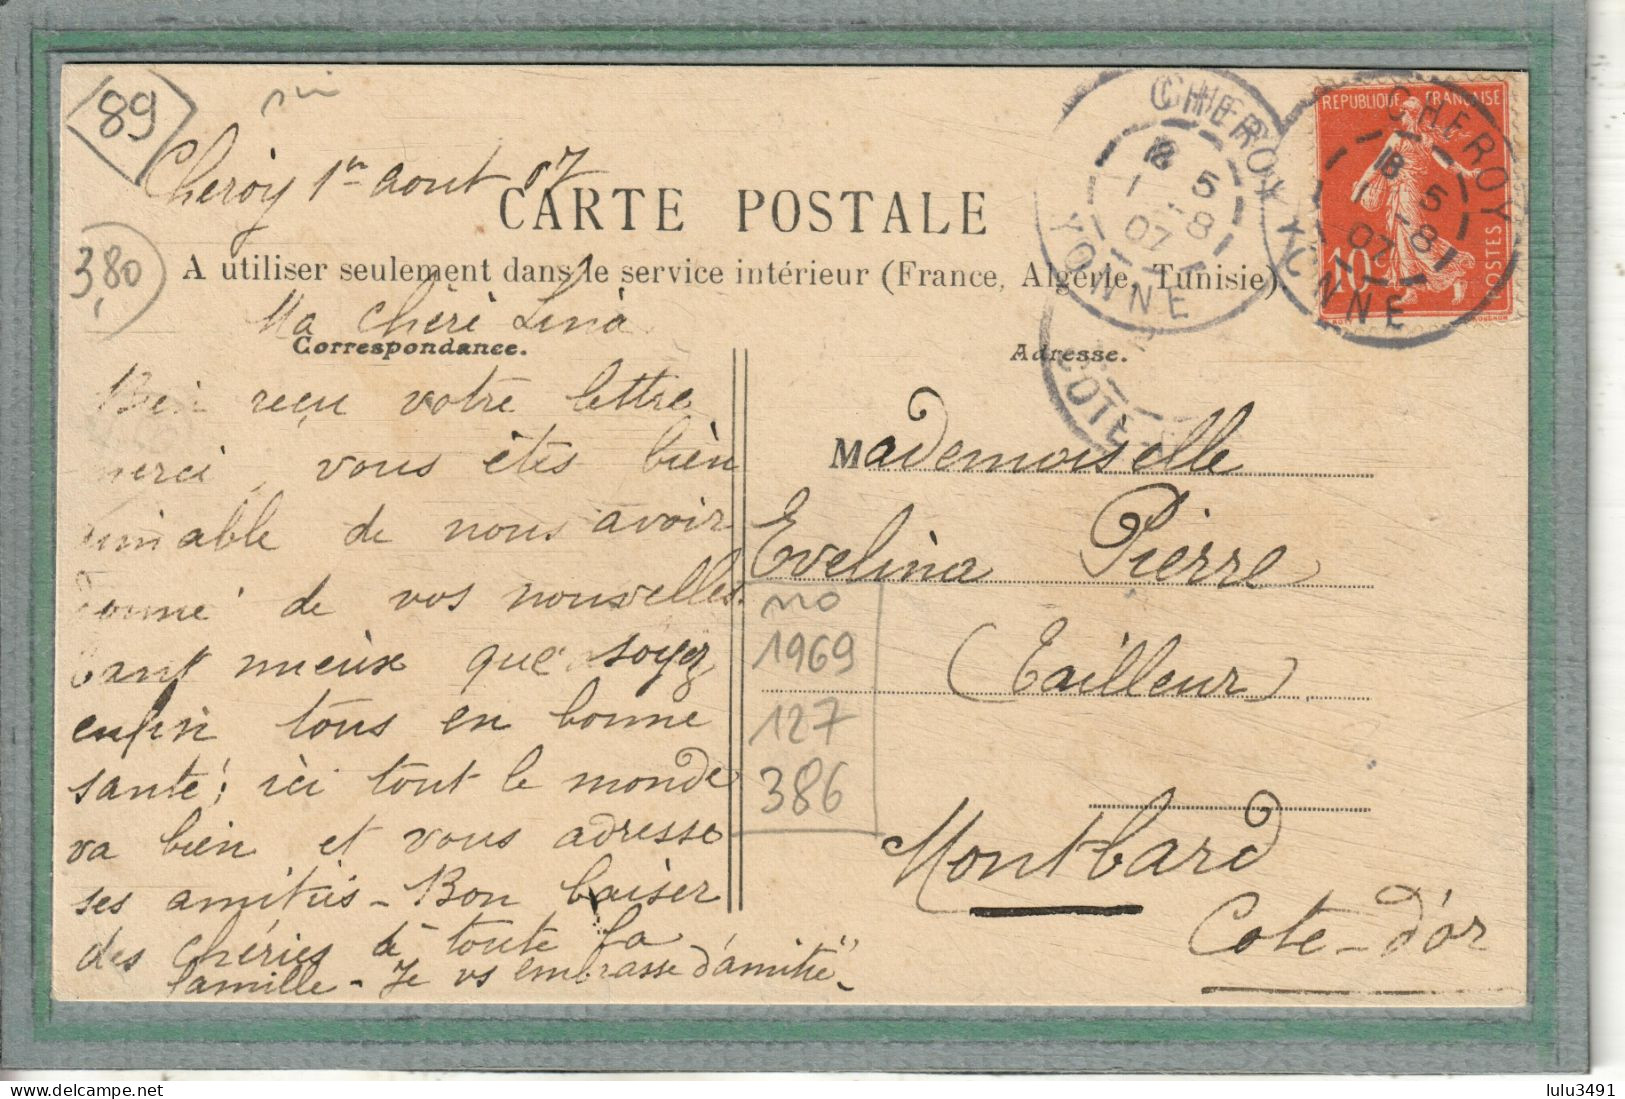 89
Cheroy 1er aout 07
CARTE POSTALE
3,80
A utiliser seulement dans le service intérieur (France, Algérie, Tunisie).
Ma Chèrè Lina
Correspondance.
Bein reçu votre lettre
merci, vous êtes bien
aimable de nous avoir
donné de vos nouvelles.
tant mieux que soyez
enfin tous en bonne
santé; ici tout le monde
va bien et vous adresse
ses amitiés - Bon baiser
des chéries à toute la
famille - Je vs embrasse d'amitié -
CHEROY
18 5
1 -8
07
YONNE
REPUBLIQUE FRANÇAISE
POSTES
10c
CHEROY
18 5
1 -8
07
YONNE
COTE-
Adresse.
Mademoiselle
Evelina Pierre
(Tailleur)
Montbard
Cote-d'or
no
1969
127
386
delcampe.net
lulu3491